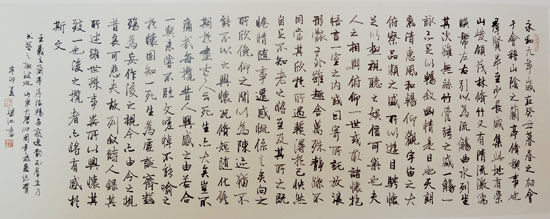 永和九年歲在癸丑暮春之初會
于會稽山陰之蘭亭脩禊事也
群賢畢至少長咸集此地有崇
山峻領茂林脩竹又有清流激湍
映帶左右引以為流觴曲水列坐
其次雖無絲竹管弦之盛一觴一
詠亦足以暢敘幽情是日也天朗
氣清惠風和暢仰觀宇宙之大
俯察品類之盛所以遊目騁懷
足以極視聽之娛信可樂也夫
人之相與俯仰一世或取諸懷抱
悟言一室之內或因寄所託放浪
形骸之外雖趣舍萬殊靜躁不
同當其欣於所遇暫得於己快然
自足不知老之將至及其所之既
惓情隨事遷感慨係之矣向之
所欣俛仰之間以為陳迹猶不
能不以之興懷況脩短隨化終
期於盡古人云死生亦大矣豈不
痛哉每攬昔人興感之由若合
一契未嘗不臨文嗟悼不能喻之
於懷固知一死生為虛誕齊彭
殤為妄作後之視今亦由今之視
昔悲夫故列敘時人錄其
所述雖世殊事異所以興懷其
致一也後之攬者亦將有感於
斯文
王羲之蘭亭序